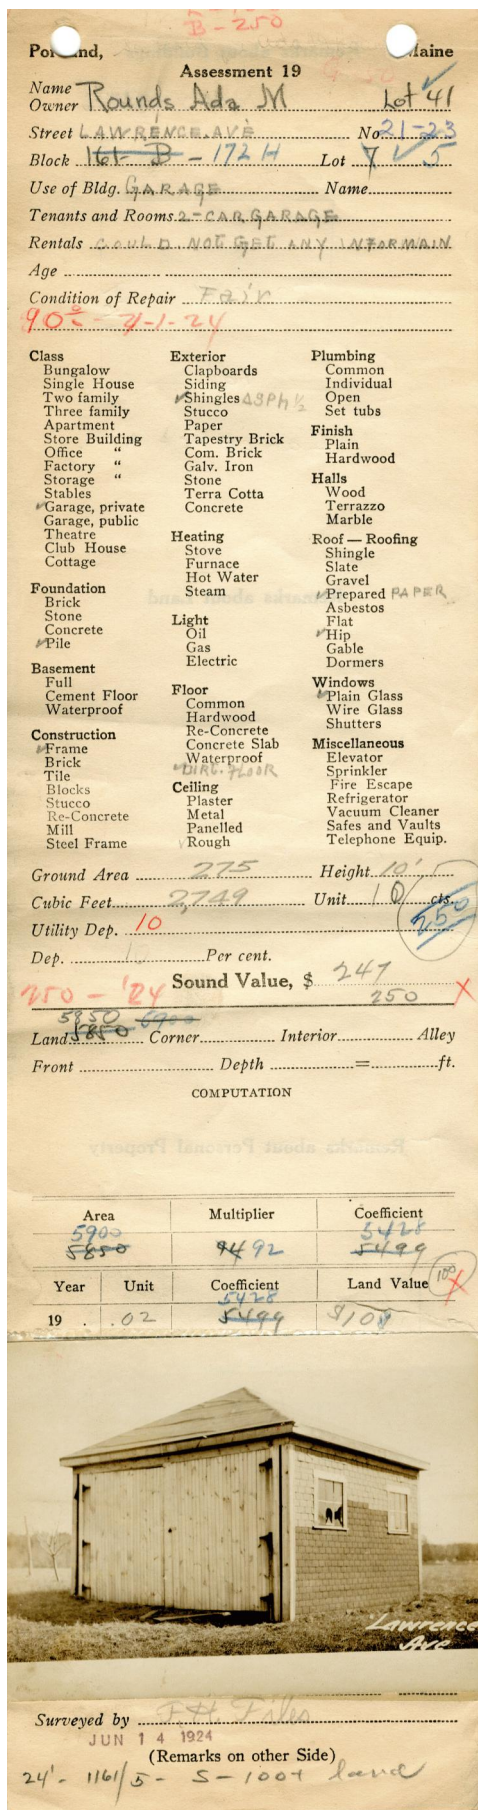 B-250
Portland, Maine
Assessment 19
Name Owner Rounds Ada M Lot 41
Street LAWRENCE AVE No 21-23
Block 161-B - 172 H Lot 7 5
Use of Bldg. GARAGE Name
Tenants and Rooms 2-CAR GARAGE
Rentals COULD NOT GET ANY INFORMAIN
Age
Condition of Repair Fair
Class
Bungalow
Single House
Two family
Three family
Apartment
Store Building
Office "
Factory "
Storage "
Stables
Garage, private
Garage, public
Theatre
Club House
Cottage
Foundation
Brick
Stone
Concrete
Pile
Basement
Full
Cement Floor
Waterproof
Construction
Frame
Brick
Tile
Blocks
Stucco
Re-Concrete
Mill
Steel Frame
Exterior
Clapboards
Siding
Shingles ASPH ½
Stucco
Paper
Tapestry Brick
Com. Brick
Galv. Iron
Stone
Terra Cotta
Concrete
Heating
Stove
Furnace
Hot Water
Steam
Light
Oil
Gas
Electric
Floor
Common
Hardwood
Re-Concrete
Concrete Slab
Waterproof
DIRT FLOOR
Ceiling
Plaster
Metal
Panelled
Rough
Plumbing
Common
Individual
Open
Set tubs
Finish
Plain
Hardwood
Halls
Wood
Terrazzo
Marble
Roof — Roofing
Shingle
Slate
Gravel
Prepared PAPER
Asbestos
Flat
Hip
Gable
Dormers
Windows
Plain Glass
Wire Glass
Shutters
Miscellaneous
Elevator
Sprinkler
Fire Escape
Refrigerator
Vacuum Cleaner
Safes and Vaults
Telephone Equip.
Ground Area 275 Height 10'
Cubic Feet 2,749 Unit 10 cts.
250
Utility Dep. 10
Dep. Per cent.
Sound Value, $ 247
250 - '24 250 X
5850 5900
Land 5850 Corner Interior Alley
Front Depth = ft.
COMPUTATION
Area Multiplier Coefficient
5900 5428
5850 94 92 5499
Year Unit Coefficient Land Value 100 X
5428
19 .02 5499 $108
Lawrence
Ave
Surveyed by F.H. Files
JUN 14 1924
(Remarks on other Side)
24' - 1161/5 - S - 100+ land